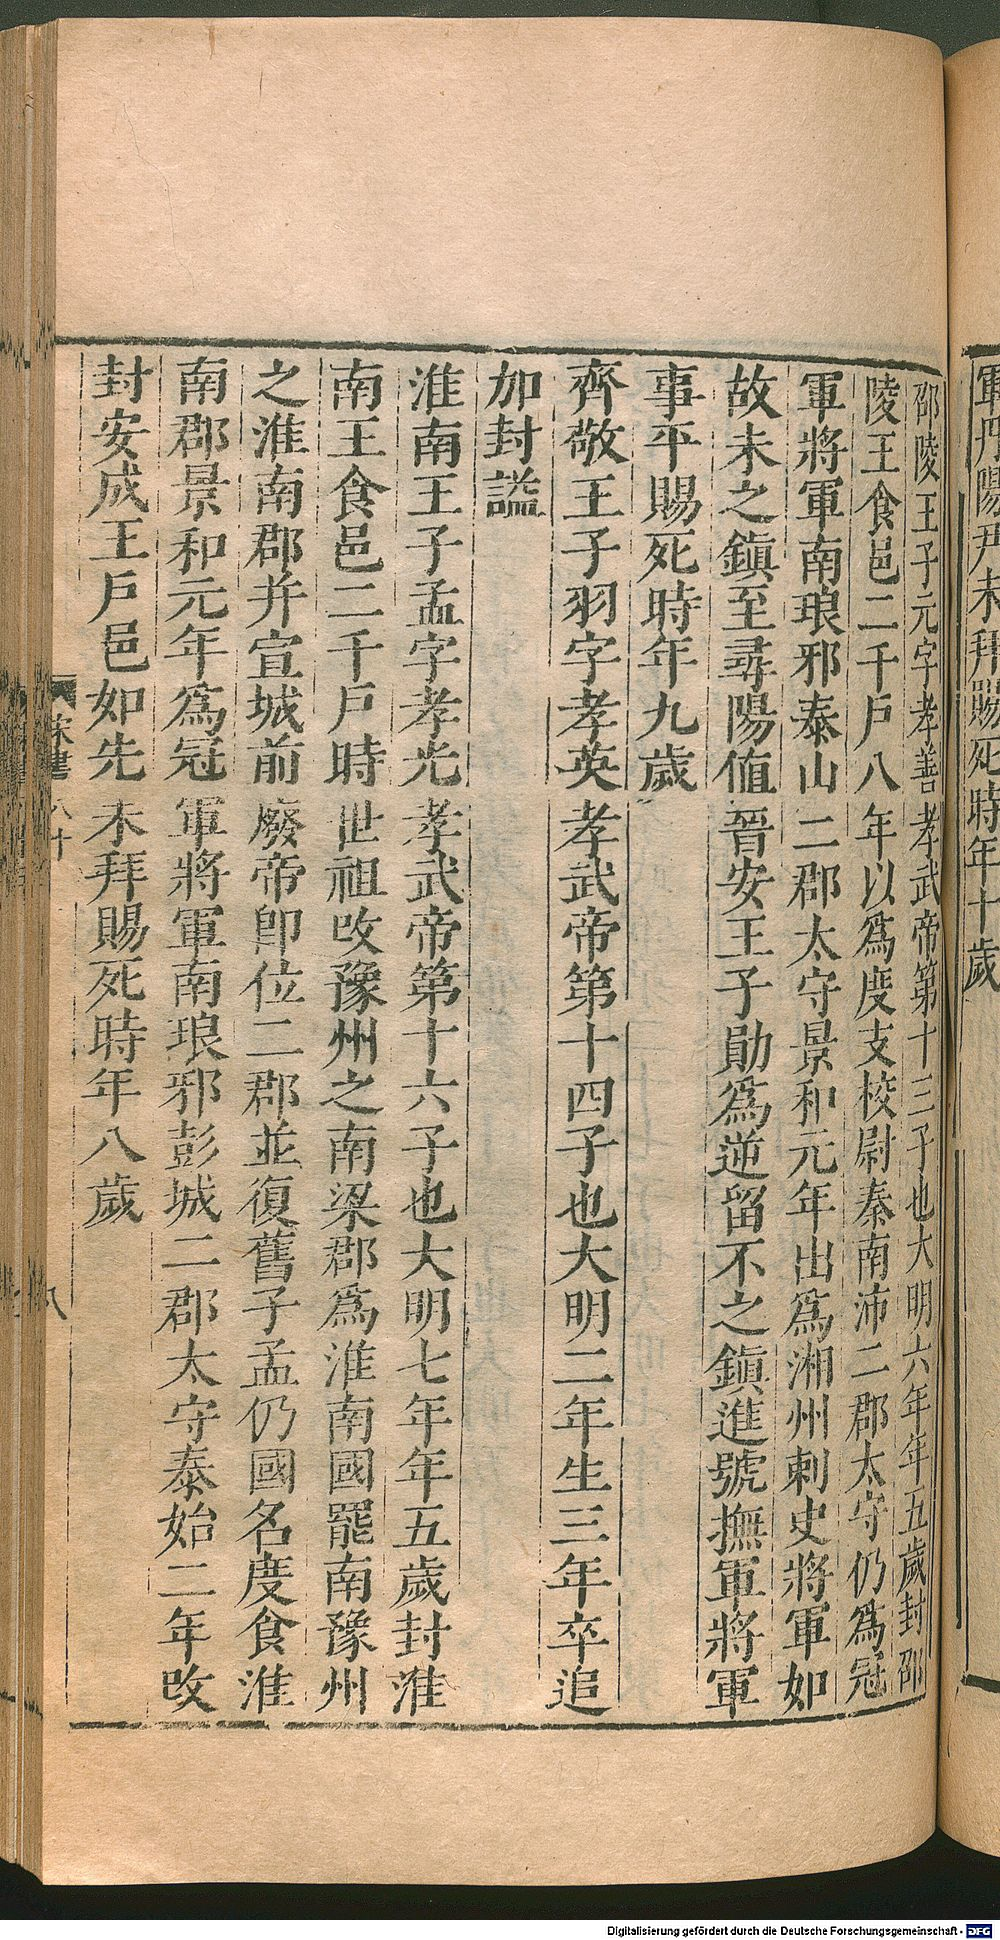 軍丹陽尹未拜賜死時年十歲
邵陵王子元字孝善孝武帝第十三子也大明六年年五歲封邵
陵王食邑二千戶八年以爲度支校尉秦南沛二郡太守仍爲冠
軍將軍南琅邪泰山二郡太守景和元年出爲湘州剌史將軍如
故未之鎮至尋陽値晉安王子勛爲逆留不之鎮進號撫軍將軍
事平賜死時年九歲
齊敬王子羽字孝英孝武帝第十四子也大明二年生三年卒追
加封謚
淮南王子孟字孝光孝武帝第十六子也大明七年年五歲封淮
南王食邑二千戶時世祖改豫州之南梁郡爲淮南國罷南豫州
之淮南郡并宣城前廢帝卽位二郡並復舊子孟仍國名度食淮
南郡景和元年爲冠軍將軍南琅邪彭城二郡太守泰始二年改
封安成王戶邑如先未拜賜死時年八歲
宋書八十
八
Digitalisierung gefördert durch die Deutsche Forschungsgemeinschaft - DFG